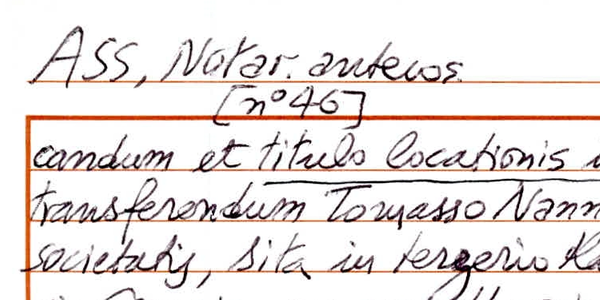 ASS, Notar. antecos.
[n° 46]
candum et titulo locationis
transferendum Tomasso Nann
societatis, sita in tergerio